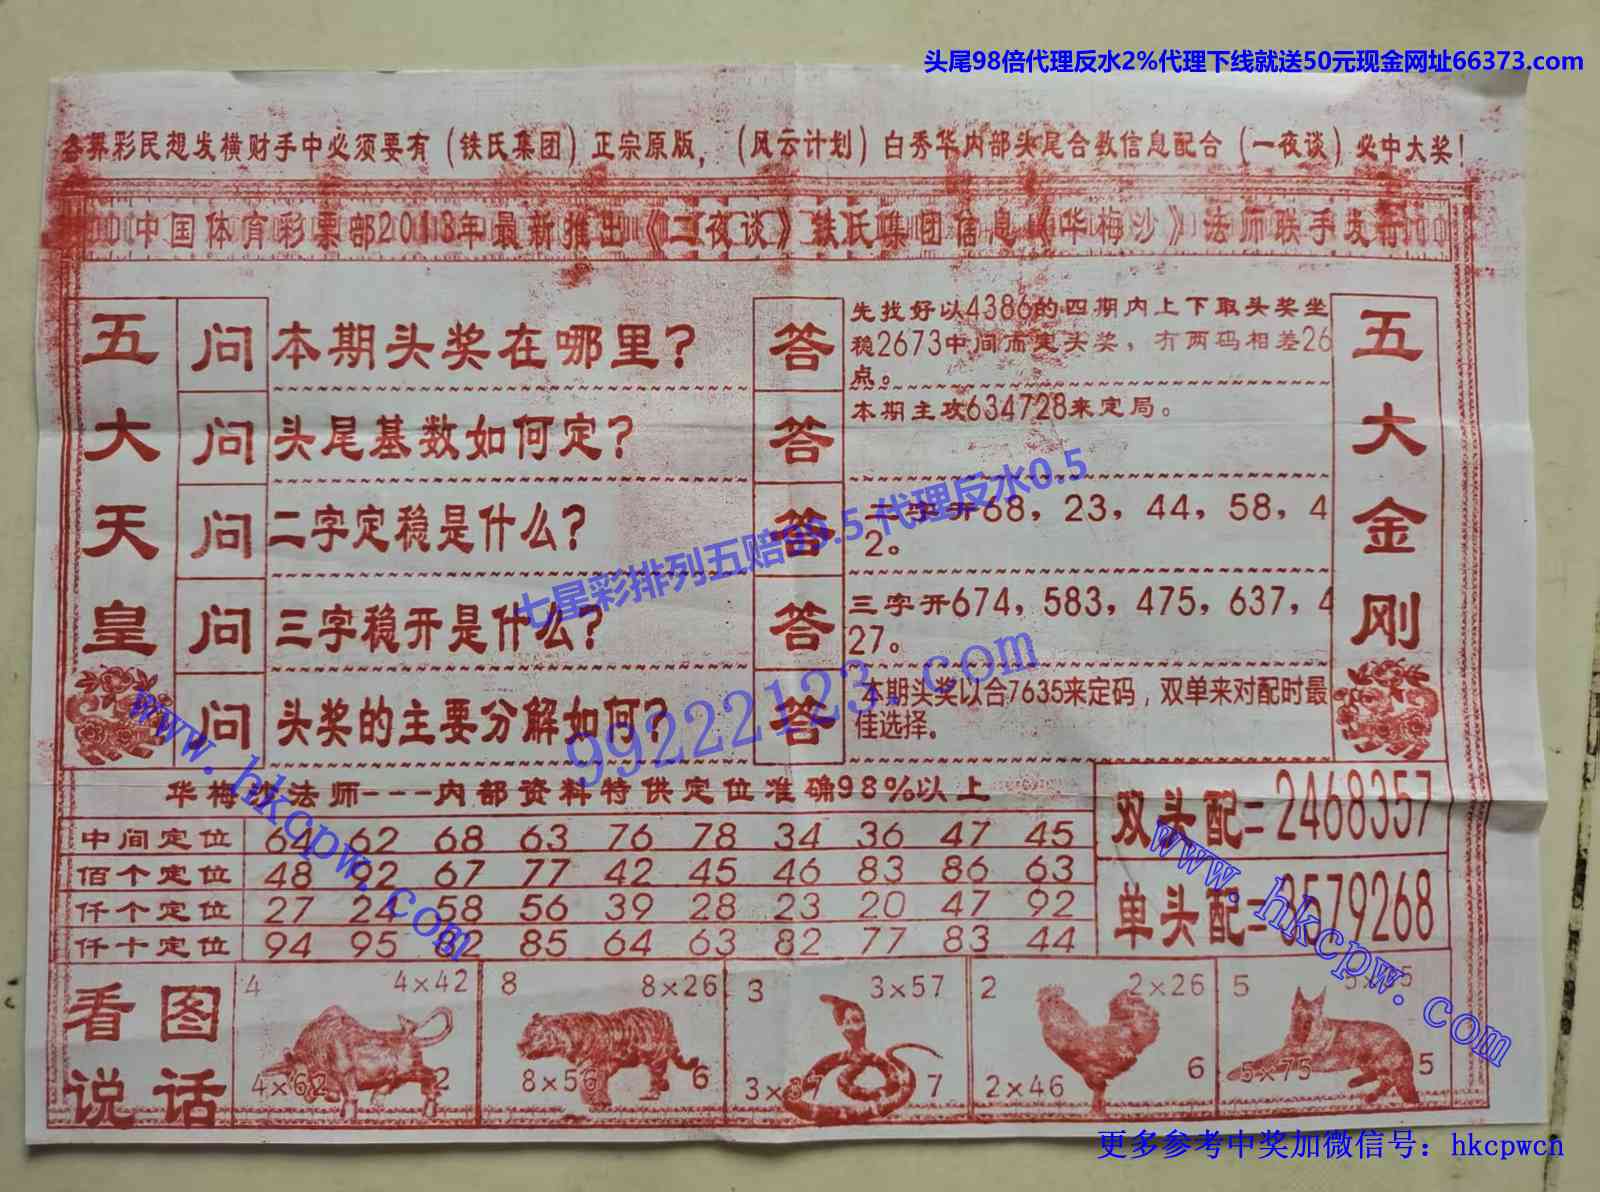 头尾98倍代理反水2%代理下线就送50元现金网址66373.com
各界彩民想发横财手中必须要有(铁氏集团)正宗原版,(风云计划)白秀华内部头尾合数信息配合(一夜谈)必中大奖!
中国体育彩票部2018年最新推出《二夜谈》铁氏集团信息《华梅沙》法师联手发行
五大天皇
问 本期头奖在哪里?
答 先找好以4386的四期内上下取头奖坐
稳2673中间而定头奖,有两码相差26
点。
问 头尾基数如何定?
答 本期主攻634728来定局。
问 二字定稳是什么?
答 二字开68,23,44,58,4
2。
问 三字稳开是什么?
答 三字开674,583,475,637,4
27。
问 头奖的主要分解如何?
答 本期头奖以合7635来定码,双单来对配时最
佳选择。
五大金刚
七星彩排列五赔99.5代理反水0.5
99222123.com
www.hkcpw.com
华梅沙法师---内部资料特供定位准确98%以上
中间定位 64 62 68 63 76 78 34 36 47 45
佰个定位 48 92 67 77 42 45 46 83 86 63
仟个定位 27 24 58 56 39 28 23 20 47 92
仟十定位 94 95 82 85 64 63 82 77 83 44
双头配=2468357
单头配=3579268
www.hkcpw.com
看图
说话
4 4×42
4×62 2
8 8×26
8×56 6
3 3×57
3×37 7
2 2×26
2×46 6
5
5×75 5
更多参考中奖加微信号:hkcpwcn